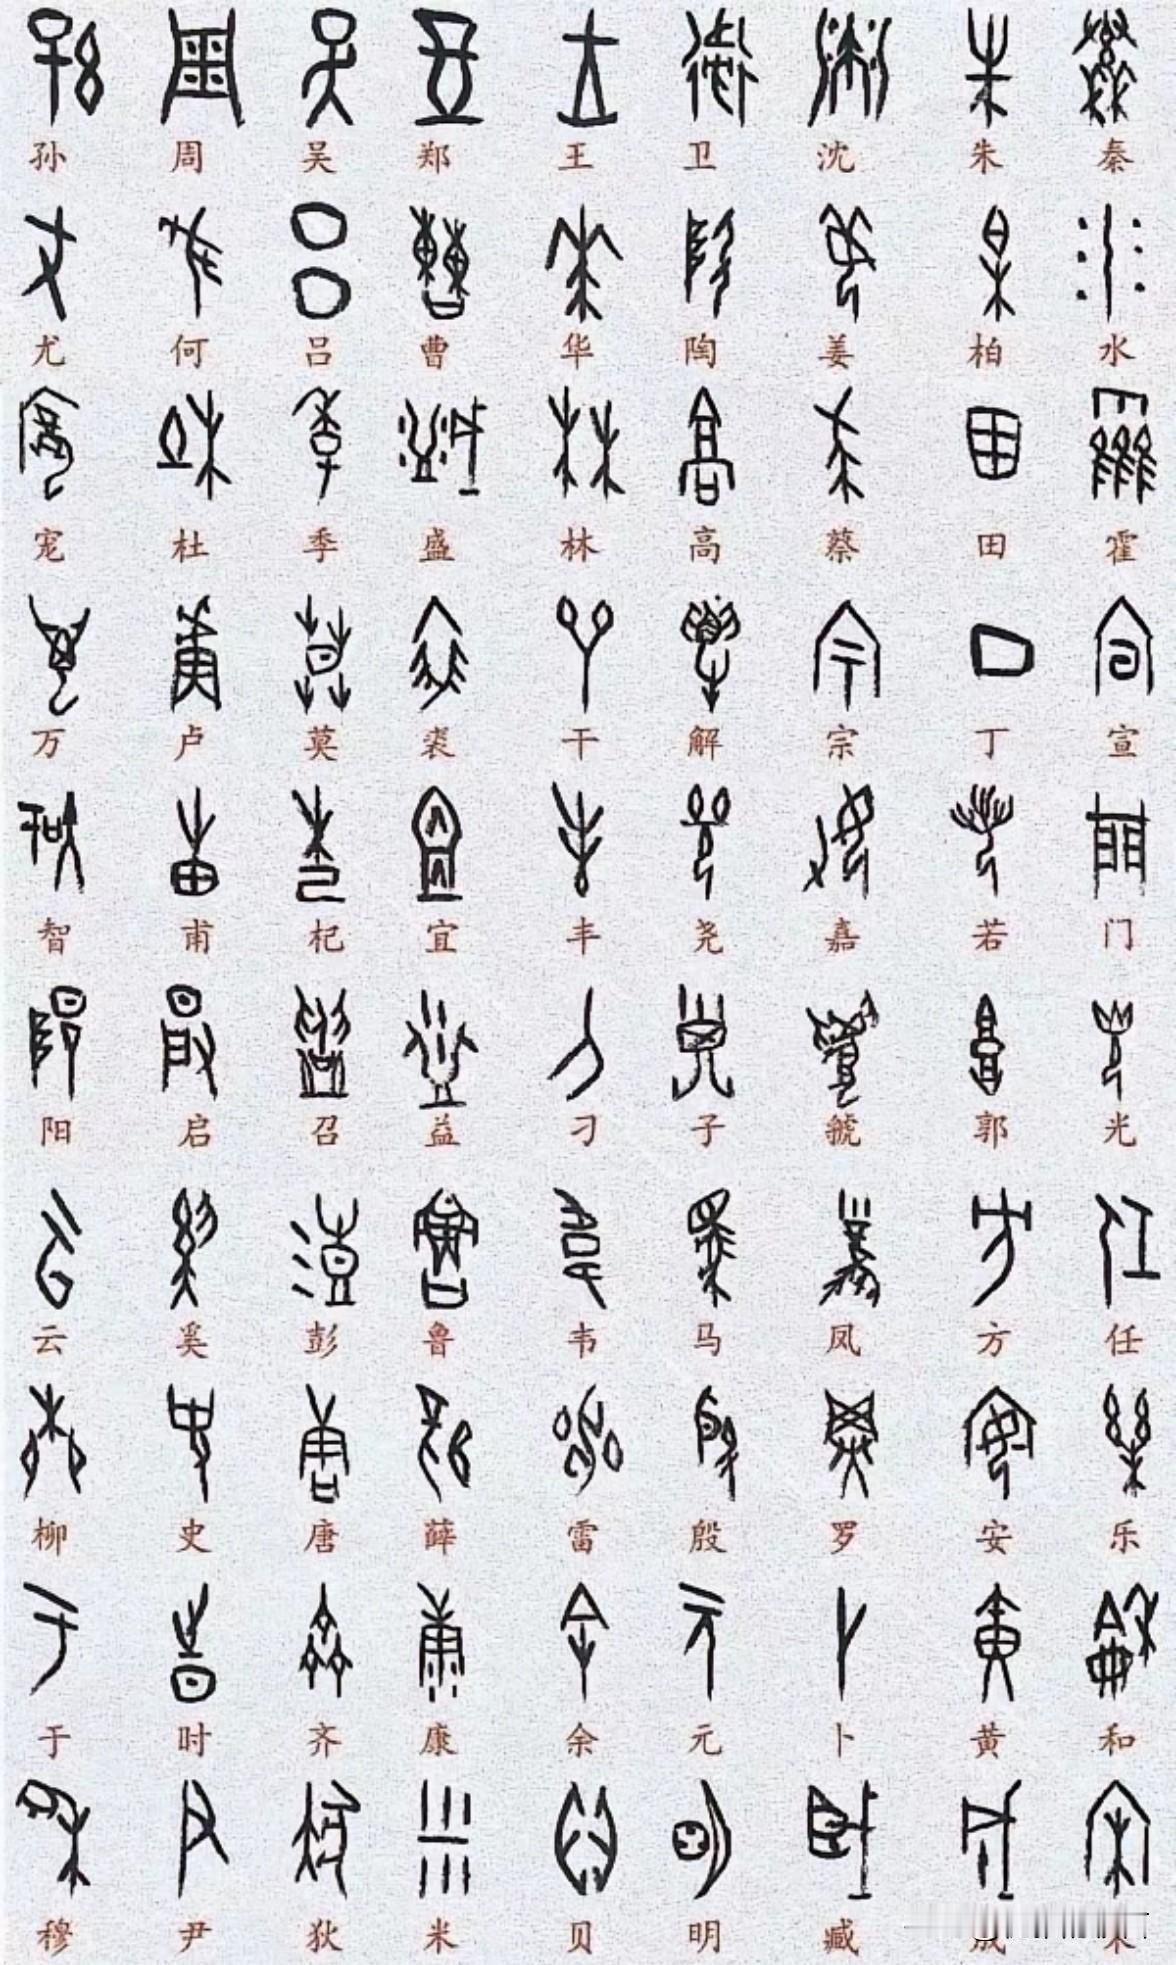 孙 周 吴 郑 王 卫 沈 朱 秦
尤 何 吕 曹 华 陶 姜 柏 水
宠 杜 季 盛 林 高 蔡 田 霍
万 卢 莫 裘 干 解 宗 丁 宣
智 甫 杞 宜 丰 尧 嘉 若 门
阳 启 召 益 刁 子 虢 郭 光
云 奚 彭 鲁 韦 马 凤 方 任
柳 史 唐 薛 雷 殷 罗 安 乐
于 时 齐 康 余 元 卜 黄 和
穆 尹 狄 米 贝 明 臧